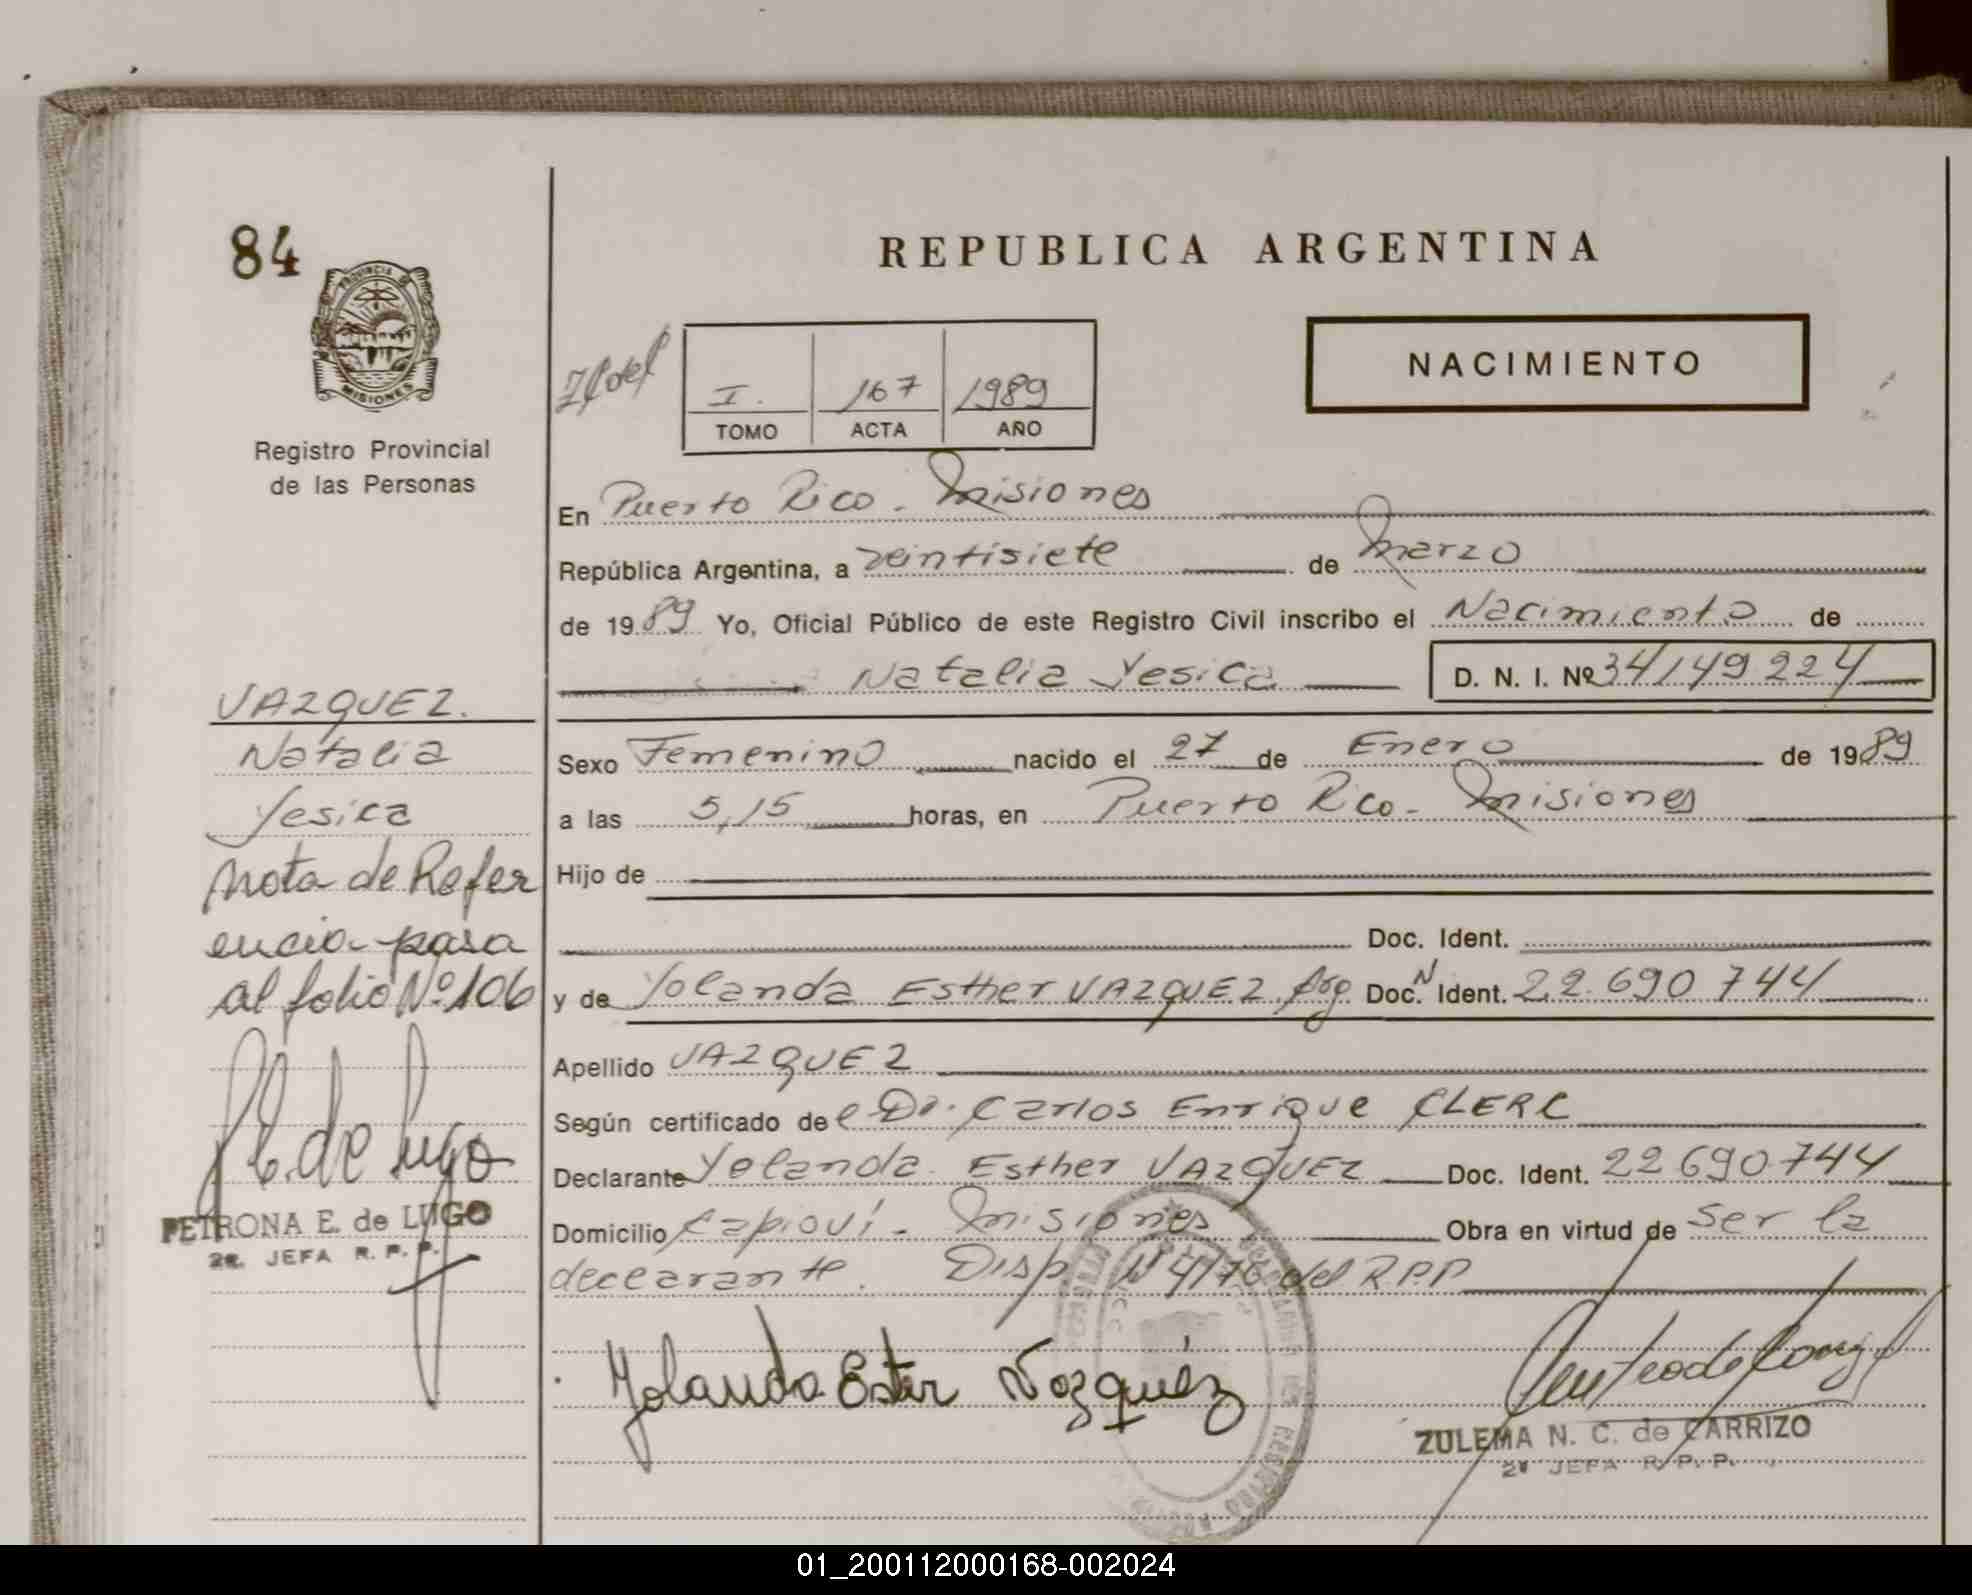 84
PROVINCIA DE
MISIONES
Registro Provincial
de las Personas
VAZQUEZ.
Natalia
Yesica
Nota de Refer
encia pasa
al folio Nº 106
E. de Lugo
PETRONA E. de LUGO
2a. JEFA R. P. P.
REPUBLICA ARGENTINA
NACIMIENTO
I. 167 1989
TOMO ACTA AÑO
En Puerto Rico. Misiones
República Argentina, a veintisiete de Marzo
de 1989 Yo, Oficial Público de este Registro Civil inscribo el Nacimiento de
Natalia Yesica D. N. I. Nº 34149224
Sexo Femenino nacido el 27 de Enero de 1989
a las 5,15 horas, en Puerto Rico - Misiones
Hijo de
Doc. Ident.
y de Yolanda Esther VAZQUEZ Arg. Doc. N Ident. 22.690 744
Apellido VAZQUEZ
Según certificado de el Dr. Carlos Enrique CLERC
Declarante Yolanda Esther VAZQUEZ Doc. Ident. 22690744
Domicilio Capioví - Misiones Obra en virtud de Ser la
declarante. Disp. Nº 4/76 del R.P.P
Yolanda Ester Vazquéz
ZULEMA N. C. de CARRIZO
2ª JEFA R. P. P.
01_200112000168-002024